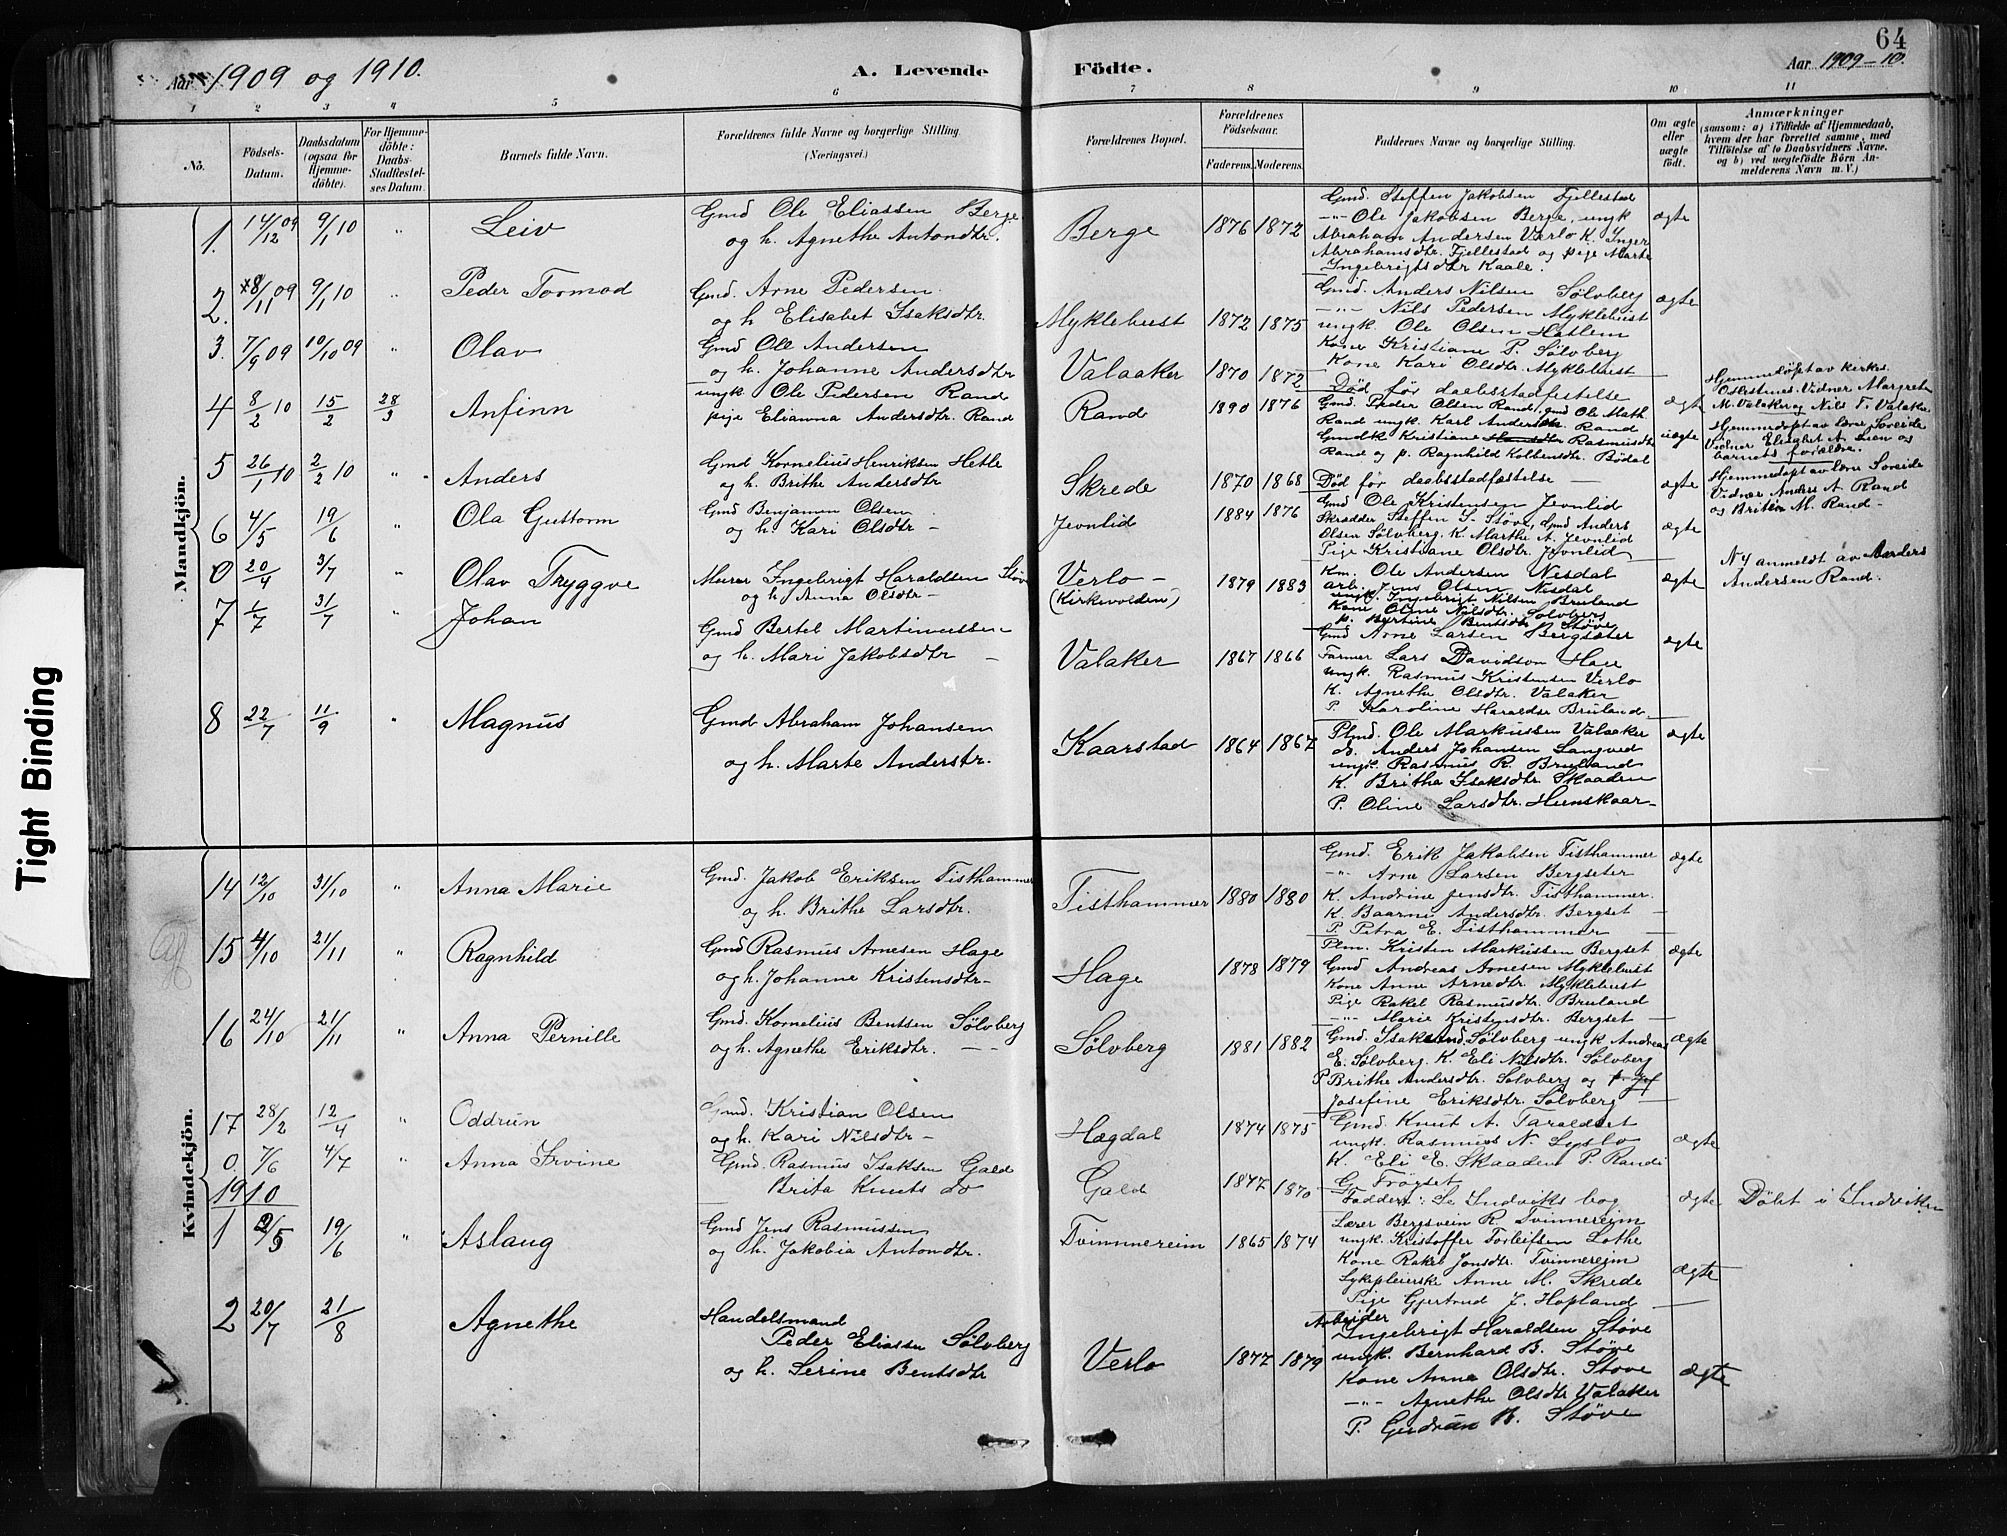 64
Aar 1909 og 1910.
A. Levende Födte.
Aar 1909-10.
1 2 3 4 5 6 7 8 9 10 11
No.
Födsels-Datum.
Daabsdatum (ogsaa for Hjemmedöbte).
For Hjemmedöbte: Daabs-Stadfæstelses Datum.
Barnets fulde Navn.
Forældrenes fulde Navne og borgerlige Stilling. (Næringsvei.)
Forældrenes Bopæl.
Forældrenes Födselsaar.
Faderens. Moderens.
Faddernes Navne og borgerlige Stilling.
Om ægte eller uægte födt.
Anmærkninger
(saasom: a) i Tilfælde af Hjemmedaab, hvem der har forrettet samme, med Tilföielse af to Daabsvidners Navne. og b) ved uægtefödte Börn Anmelderens Navn m. V.)
Mandkjön.
1. 14/12 09 9/1 10 " Leiv
Gmd Ole Eliassen Berge
og h. Agnethe Antondtr.
Berge 1876 1872
Gmd. Steffen Jakobsen Fjellestad
-"- Ole Jakobsen Berge, ungk
Abraham Andersen Verlo K. Inger
Abrahamsdtr. Fjellestad og pige Marte
Ingebrigtsdtr Kaale.
ægte
2. 8/11 09 9/1 10 " Peder Tormod
Gmd. Arne Pedersen
og h Elisabet Isaksdtr.
Myklebust 1872 1875
Gmd. Anders Nilsen Sølvberg
-"- Nils Pedersen Myklebust
ungk. Ole Olsen Hatlem
Kone Kristiane P. Sølvberg
Kone Kari Olsdtr. Myklebust
ægte
3. 7/9 09 10/10 09 " Olav
Gmd Ole Andersen
og h. Johanne Andersdtr
Valaaker 1870 1872
Død før daabsstadfestelse
ægte
Hjemmedøpt av kirkes.
Vidner Margrete
M. Valaker og Nils T. Valaker
4 8/2 10 15/2 28/3 Anfinn
ungk. Ole Pedersen Rand
pige Elianna Andersdtr. Rand
Rand 1890 1876
Gmd. Peder Olsen Rand, gmd Ole Math.
Rand ungk. Karl Andersen Rand
Gmdk Kristiane Rasmusdtr
Rand og p. Ragnhild Kolbensdtr. Bødal
uægte
Hjemmedøpt av lærer Soreide
Vidner Elisabet A. Lien og
barnets forældre.
5 26/1 10 2/2 10 " Anders
Gmd Kornelius Henriksen Hetle
og h. Brithe Andersdtr
Skrede 1870 1868
Død før daabsstadfæstelse —
ægte
Hjemmedøpt av lærer Soreide
Vidner Anders A. Rand
og Brithe M. Rand -
6 4/5 19/6 " Ola Guttorm
Gmd Benjamin Olsen
og h. Kari Olsdtr -
Jevnlid 1884 1876
Gmd Ole Kristensen Jevnlid
Skrædder Steffen S. Støve, Gmd Anders
Olsen Sølvberg. K. Marthe A. Jevnlid
Pige Kristiane Olsdtr. Jevnlid
ægte
N 4 anmeldt av Anders
Andersen Rand.
0 20/4 3/7 " Olav Tryggve
Murer Ingebrigt Haraldsen Støve
og h. Anna Olsdtr -
Verlo -
(Kirkevolden)
1879 1883
Km. Ole Andersen Nesdal
arb. Jens Olsen Nesdal
ungk. Ingebrigt Nilsen Bruland
Kone Oline Nilsdtr. Sølvberg
p. Bertine Bentsdtr Støve
ægte
7 1/7 31/7 " Johan
Gmd Bertel Martinussen -
og h. Mari Jakobsdtr -
Valaker 1867 1866
Gmd Arne Larsen Bergsæter
Farmer Lars Davidson Hage
ungk. Rasmus Kristensen Verlo
K. Agnethe Olsdtr. Valaker
P. Karoline Haraldsdtr Bruland
ægte
8 22/7 11/9 " Magnus
Gmd Abraham Johansen
og h. Marte Anderstr.
Kaarstad 1864 1867
Plmd. Ole Markussen Valaaker
do. Anders Johansen Langved
ungk. Rasmus R. Bruland
K. Britha Isaksdtr. Skaaden
P. Oline Larsdtr. Hunskaar -
ægte
Kvindekjön.
14 12/10 31/10 " Anna Marie
Gmd. Jakob Eriksen Tisthammer
og h. Brithe Larsdtr.
Tisthammer 1880 1880
Gmd. Erik Jakobsen Tisthammer
-"- Arne Larsen Bergseter
K. Andrine Jensdtr. Tisthammer.
K. Baarni Andersdtr. Bergset
P Petra E. Tisthammer
ægte
15 4/10 21/11 " Ragnhild
Gmd Rasmus Arnesen Hage
og h. Johanne Kristensdtr -
Hage 1878 1879
Plm. Kristen Markussen Bergset
Gmd Andreas Arnesen Myklebust
Kone Anne Arnedtr. Myklebust
Pige Rakel Rasmusdtr. Bruland
-"- Marie Kristensdtr. Bergset
ægte
16 24/10 21/11 " Anna Pernille
Gmd. Kornelius Bentsen Sølvberg
og h. Agnethe Eriksdtr. - -
Sølvberg 1881 1882
Gmd. Isak Sølvberg ungk Andreas
E. Sølvberg. K. Eli Nilsdtr. Sølvberg
P Brithe Andersdtr. Sølvberg og
Josefine Eriksdtr. Sølvberg
ægte
17 28/2 12/4 " Oddrun
Gmd. Kristian Olsen
og h. Kari Nilsdtr -
Hægdal 1874 1875
Gmd. Knut A. Taraldset
ungk. Rasmus N. Lyslo
K. Eli E. Skaaden P. Randi
G. Frøyset
ægte
0. 7/6 4/7 " Anna Irvine
Gmd. Rasmus Isaksen Gald
Brita Knuts do
Gald 1877 1870
Faddere: Se Indviks bog
ægte
Døbt i Indviken
1910
1 2/5 19/6 " Aslaug
Gmd Jens Rasmussen
og h. Jakobia Antondtr.
Tvinnereim 1865 1874
Lærer Bergsvein R. Tvinnereim
ungk. Kristoffer Torleifsen Lothe
Kone Rakel Jonsdtr. Tvinnereim
Sykepleierske Anne M. Skrede
Pige Gjertrud J. Hopland
ægte
2 20/7 21/8 Agnethe
Handelsmand
Peder Eliassen Sølvberg
og h. Serine Bentsdtr
Verlo 1877 1879
Arbeider
Ingebrigt Haraldsen Støve
ungk. Bernhard B. Støve
Kone Anna Olsdtr. Støve
-"- Agnethe Olsdtr Valaker
P. Gudrun B. Støve
ægte
Tight Binding